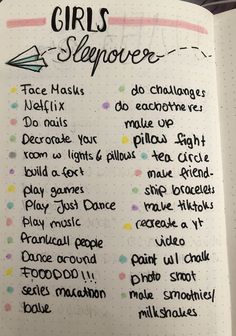 GIRLS
Sleepover
Face Masks
Netflix
Do nails
Decrorate your
room w lights & pillows
build a fort
play games
Play Just Dance
Play music
Prankcall people
Dance around
FOOODDD!!!
series marathon
bake
do challanges
do eachotheres
make up
pillow fight
tea circle
make friend-
ship bracelets
make tiktoks
recreate a yt
video
paint w/ chalk
photo shoot
make smootnies/
milkshakes